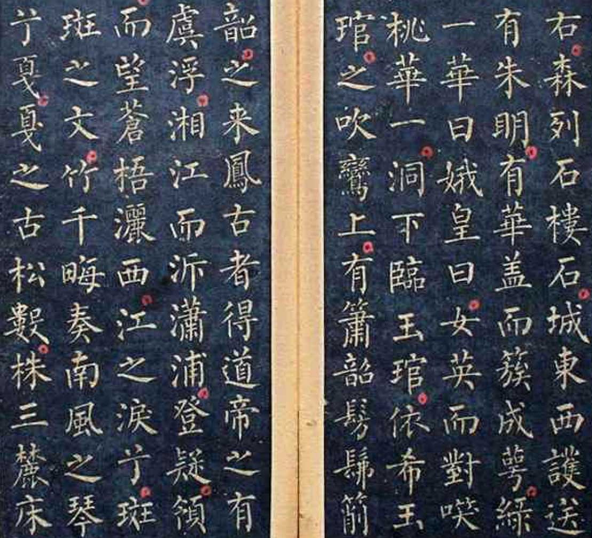 右森列石樓石城東西護送
有朱明有華盖而簇成萼綠
一華曰娥皇曰女英而對咲
桃華一洞下臨玉琯依希玉
琯之吹鸞上有簫韶髣髴箾
韶之来鳳古者得道帝之有
虞浮湘江而泝瀟浦登疑領
而望蒼梧灑西江之淚亍斑
斑之文竹千晦奏南風之琴
亍戛戛之古松數株三麓床